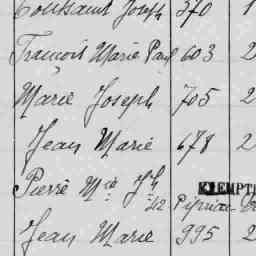 Toussaint Joseph 370 1
François Marie Paul 603 2
Marie Joseph 705 2
Jean Marie 678 2
Pierre Mie Jh EXEMPT
42 Pipriac
Jean Marie 995 2